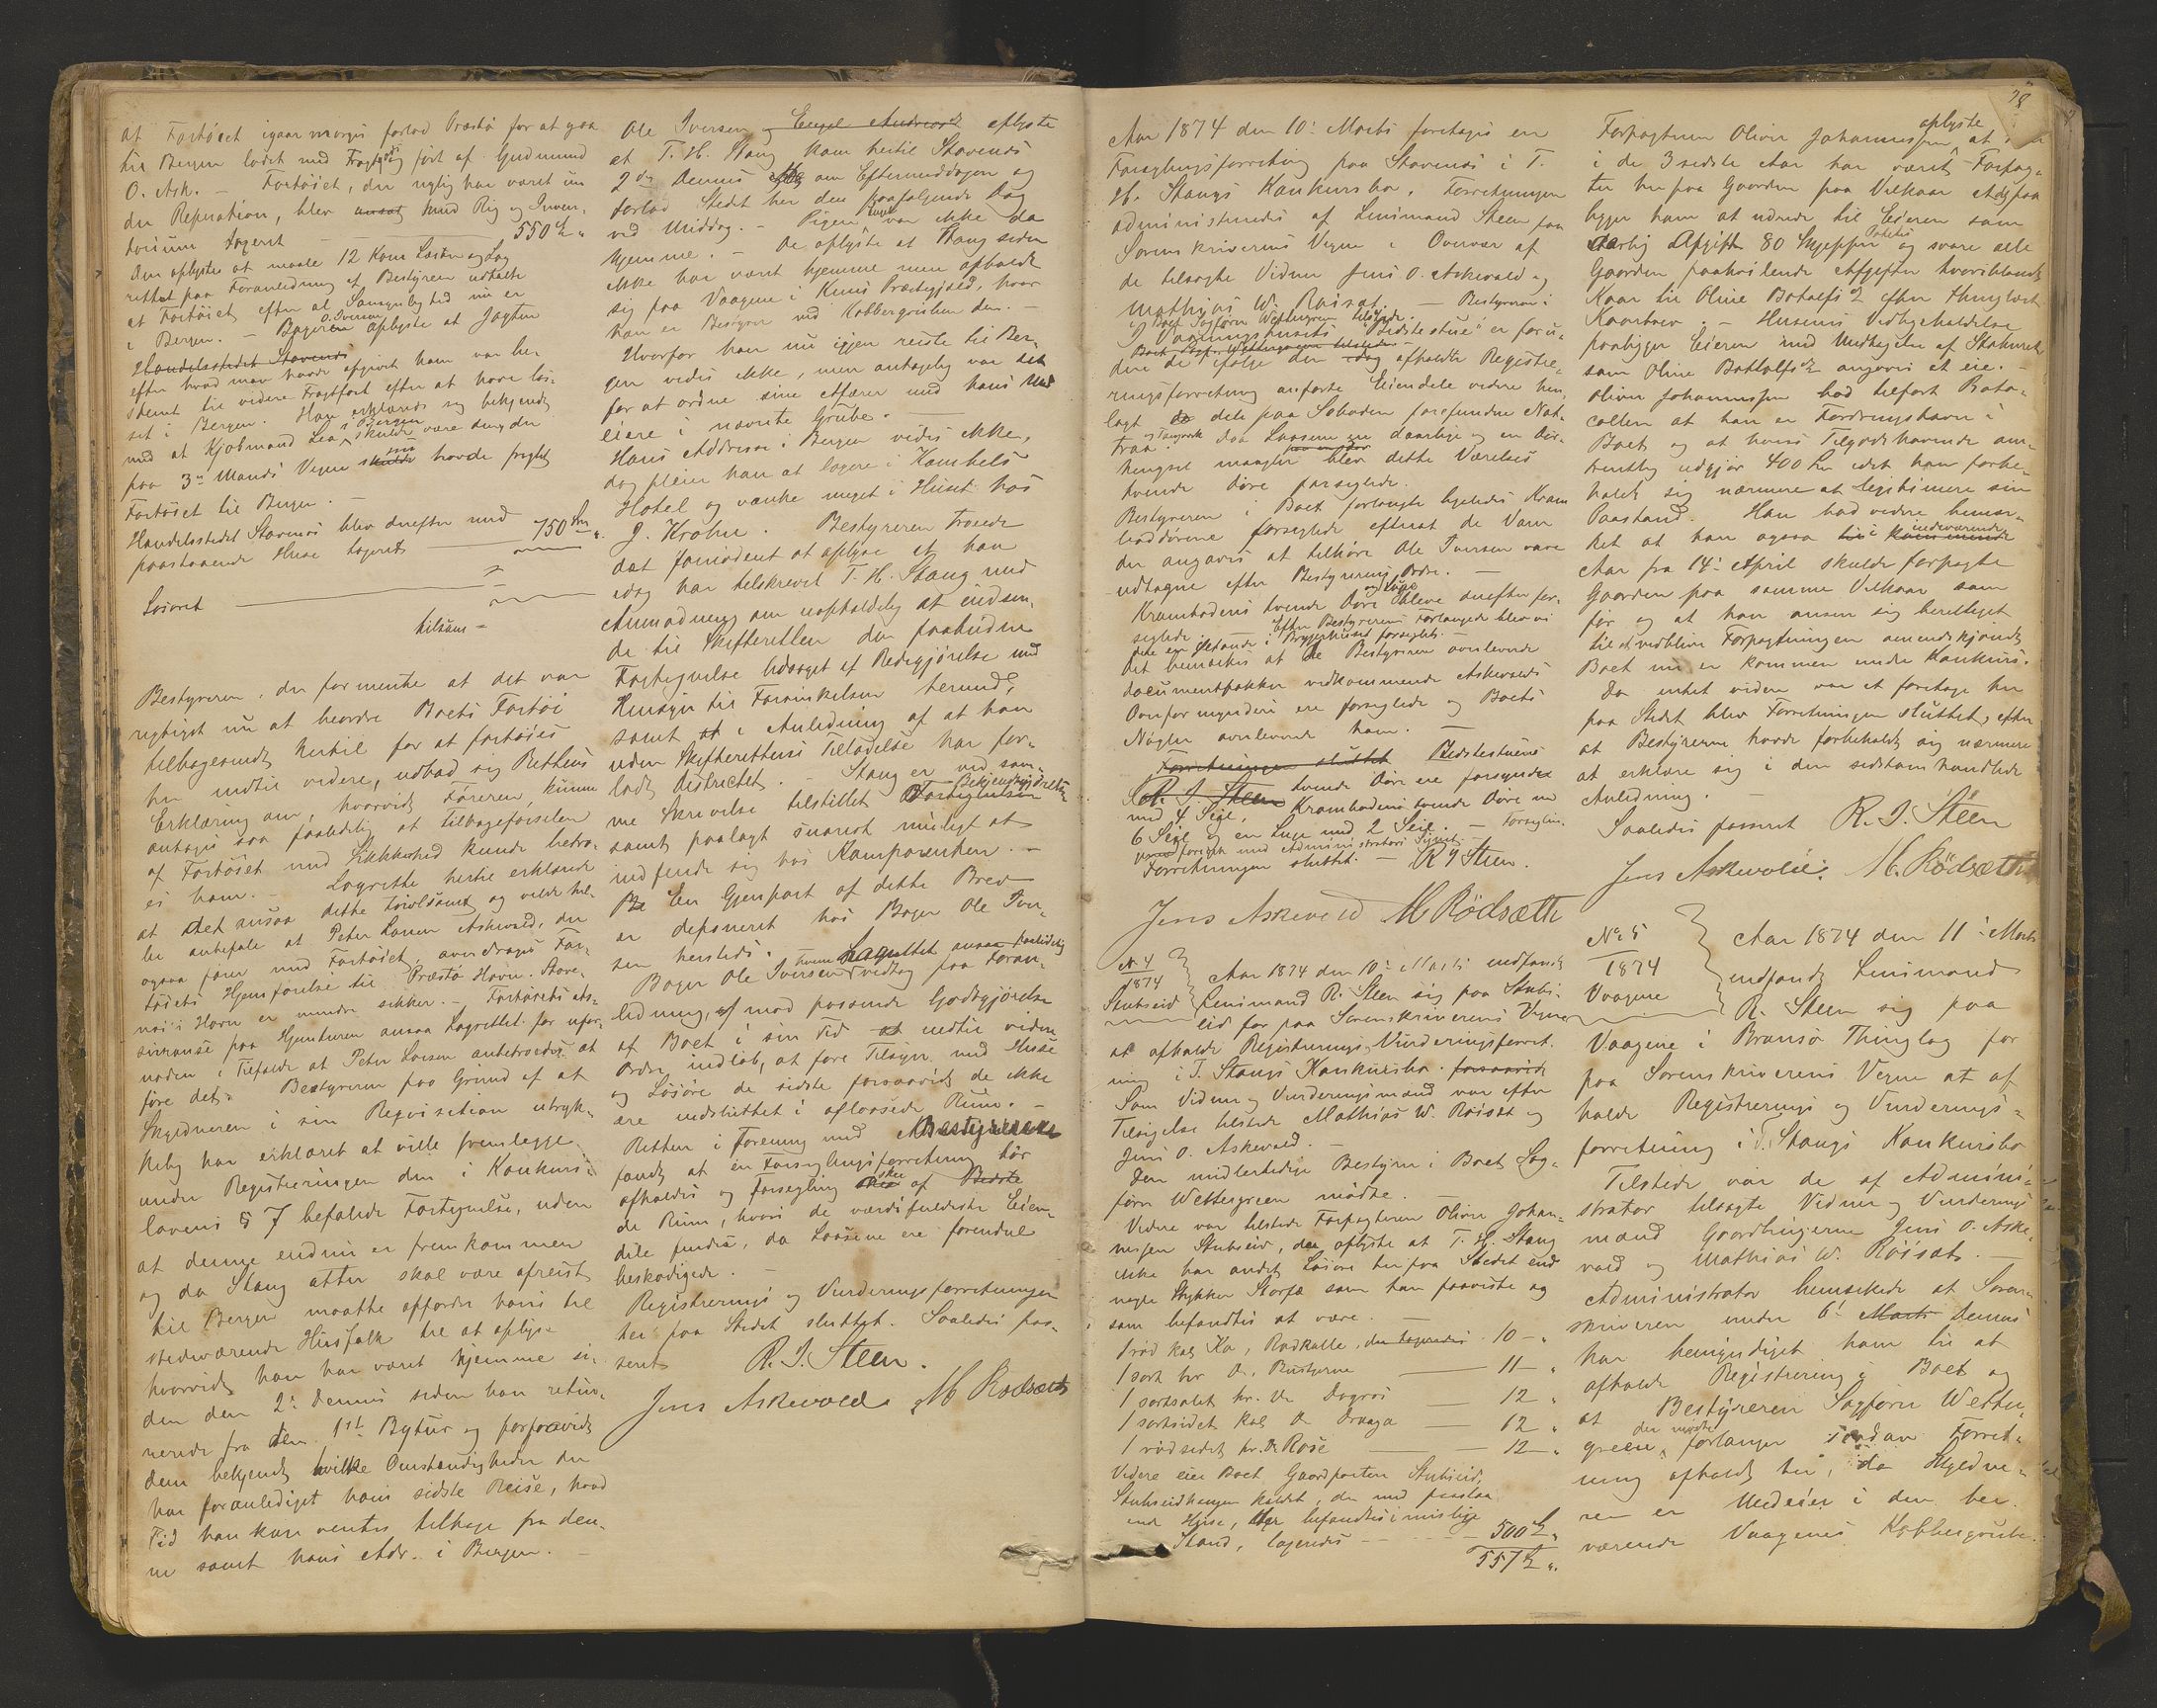 at Fartöiet igaar morges forlod Præstö for at gaa
til Bergen ladet med Fragtgods ført af Gudmund
O. Ask. – Fartöiet, der nylig har været un
der Reperation, blev med Rig og Inven-
tarium taxeret 550 Spd "
Den oplystes at maale 12 Kom. Læster og Lag
rettet paa Foranledning af Bestyreren udtalte
at Fartöiet efter al Sansynlighed nu er
i Bergen. – Bogeren O. Iversen oplyste at Jagten
Handelsstedet Stavenes
efter hvad man havde opgivet ham var be
stemt til videre Fragtfart efter at have los-
set i Bergen. Han erklærede sig bekjendt
med at Kjøbmand Lea i Bergen skulde være den, der
paa 3die Mands Vegne havde fragtet
Fartöiet til Bergen. –
Handelsstedet Stavenes blev derefter med
paastaaende Huse taxeret 750 Spd ".
Løsøret
tilsam =
Bestyreren, der formente at det var
rigtigst nu at beordre Boets Fartöi
tilbagesendt hertil for at fortøies
her indtil videre, udbad sig Rettens
Erklæring om, hvorvidt Føreren kunne
antages saa paalidelig at Tilbageførselen
af Fartöiet med Sikkerhed kunde betro-
es ham. – Lagrette hertil erklærede
at det ansaa dette tvivlsomt og vilde hel-
ler anbefale at Peter Larsen Askvold, der
ogsaa farer med Fartöiet, overdrages Far-
töiets Hjemførelse til Præstö Havn. Stave-
næs Havn er mindre sikker. – Fartøiets As-
surance paa Hjemturen ansaa Lagrettet for ufor-
nøden i Tilfælde at Peter Larsen anbetroedes at
føre det. Bestyreren paa Grund af at
Skyldneren i sin Reqvisition udtryk-
kelig har erklæret at ville fremlegge
under Registreringen den i Konkurs-
lovens § 7 befalede Fortegnelse, uden
at denne endnu er fremkommen
og da Stang atter skal være afreist
til Bergen maatte opfordre hans til
stedeværende Husfolk til at oplyse
hvorvidt han har været hjemme si-
den den 2. dennes siden han retur-
nerede fra den 1st Bytur og forsaavidt
dem bekjendt hvilke Omstændigheder der
har foranlediget hans sidste Reise, hvad
Tid han kan ventes tilbage fra den-
ne samt hans Adr. i Bergen. –
Ole Iversen og Engel Andreasd. oplyste
at T. H. Stang kom hertil Stavenes
2den Dennes om Eftermiddagen og
forlod Stedet her den paafølgende Dag
ved Middag. – Pigen var ikke da
hjemme. – De oplyste at Stang siden
ikke har været hjemme men opholdt
sig paa Vaagene i Kinns Præstegjæld, hvor
han er Bestyrer ved Kobbergruben der. –
Hvorfor han nu igjen reiste til Ber-
gen vides ikke, men antagelig var det
for at ordne sine Affærer med hans Med
eiere i nævnte Grube. –
Hans Addresse i Bergen vides ikke,
dog pleier han at logere i
Hotel og vanke meget i Huset hos
J. Krohn. Bestyreren troede
det fornødent at oplyse at han
idag har tilskrevet T. H. Stang med
Anmodning om uopholdelig at indsen-
de til Skifteretten den paabudne
Fortegnelse ledsaget af Redegjørelse med
Hensyn til Forsinkelsen herved,
samt i Anledning af at han
uden Skifterettens Tilladelse har for-
ladt Distrectet. – Stang er ved sam-
me Skrivelse tilstillet Bekjendtgjørelsen
samt paalagt snarest muligst at
indfinde sig hos Komparenten. –
En Gjenpart af dette Brev
er deponeret hos Boger Ole Iver-
sen hersteds.
Boger Ole Iversen hvem Lagrettet ansaa paalidelig vedtog paa Foran-
ledning, mod passende Godtgjørelse
af Boet i sin Tid indtil videre
Ordre indløb, at føre Tilsyn med Huse
og Løsøre de sidste forsaavidt de ikke
ere indsluttet i aflaasede Rum. –
Retten i Forening med Bestyreren
fandt at en Forseglingsforretning bør
afholdes og forsegling ske af
de Rum, hvori de værdifuldeste Eien-
dele findes, da Laasene ere forendel
beskadigede. –
Registrerings og Vurderingsforretningen
her paa Stedet sluttet. Saaledes pas-
seret R. I. Steen.
Jens Askevold M Rødsæth
78
Aar 1874 den 10de Marts foretoges en
Forseglingsforretning paa Stavenes i T.
H. Stangs Konkursbo. Forretningen
administreredes af Lensmand Steen paa
Sorenskriverens Vegne i Overvær af
de tilsagte Vidner Jens O. Askevold og
Mathias W. Roisæt. – Bestyreren i
Boet Sagfører Wettergreen tilstede.
I Vaaningshusets "Bedstestue" er foru-
den de ifølge den idag afholdte Registre-
ringsforretning anførte Eiendele videre hen-
lagt dels paa Søboden forefundne Not-
traa og Taugværk. Da Laasene ere daarlige og en Dør-
hengsel mangler blev dette Værelses
tvende Døre forseglede.
Bestyreren i Boet forlangte ligeledes Kram
boddørene forseglede efterat de Varer
der angaves at tilhøre Ole Iversen vare
udtagne efter Bestyrerens Ordre. –
Krambodens tvende Døre og Luge bleve derefter for-
seglede. Efter Bestyrerens Forlangende blev vi
dere en Lislaade i Bryggerhuset forseglet. –
Det bemærkes at de Bestyreren overleverede
Documentpakker vedkommende Askevolds
Overformynderi ere forseglede og Boets
Nøgler overleverede ham. –
Forretningen sluttet Bedstestuens
R. I. Steen tvende Døre ere forsynede
med 4 Segl, Krambodens tvende Døre med
6 Segl og en Luge med 2 Segl. – Forseglin-
gerne foregik med Administrators Signet. –
Forretningen sluttet. – R I Steen.
Jens Askevold M Rödsæth
No 4
1874
Stubseid
Aar 1874 den 10de Marts indfandt
Lensmand R. Steen sig paa Stubs-
eid for paa Sorenskriverens Vegne
at afholde Registrerings, Vurderingsforret-
ning i T. Stangs Konkursbo. forsaavidt
Som Vidner og Vurderingsmænd var efter
Tilsigelse tilstede Mathias W. Roisæt og
Jens O. Askevold. –
Den midlertidige Bestyrer i Boet Sag-
fører Wettergreen mødte. –
Videre var tilstede Forpagteren Oliver Johan-
nessen Stubseid, der oplyste at T. H. Stang
ikke har andet Løsøre her paa Stedet end
nogle Stykker Storfæ som han paaviste og
som befandtes at være. –
1 rød kol. Ko, Rødkolle, den taxeredes 10 – "
1 sort hr Do, Bustgerne 11 – "
1 sortsolet hr. Do Dagros 12 "
1 sortsidet kol Do Draaga 12 "
1 rødsidet hr. Do Rose 12 – "
Videre eier Boet Gaardparten Stubseid,
Stubseidhaugen kaldet, der med paastaa
ende Huse, der befandtes i mislige
Stand, taxeredes – – – 500 Spd "
557 Spd ".
Forpagteren Oliver Johannessen oplyste at
i de 3 sidste Aar har været Forpag-
ter her paa Gaarden paa Vilkaar at der paa
ligger ham at udrede til Eieren som
aarlig Afgift 80 Skjepper Poteter og svare alle
Gaarden paahvilende Afgifter hvoriblandt
Kaar til Oline Botolfsd. efter thinglæst
Kaarbrev. – Husenes Vedligeholdelse
paaligger Eieren med Undtagelse af Stabburet
som Oline Bottolfsd. angaves at eie. –
Oliver Johannessen bad tilført Proto-
collen at han er Fordringshaver i
Boet og at hans Tilgodehavende om-
trentlig udgjør 400 Spd idet han forbe-
holdt sig nærmere at legitimere sin
Paastand. Han bad videre bemær-
ket at han ogsaa i indeværende
Aar fra 14de April skulde forpagte
Gaarden paa samme Vilkaar som
før og at han anser sig berettiget
til at vedblive Forpagtningen omendskjøndt
Boet nu er kommen under Konkurs.
Da intet videre var at foretage her
paa Stedet blev Forretningen sluttet, efter
at Bestyreren havde forbeholdt sig nærmere
at erklære sig i den sidstomhandlede
Anledning. –
Saaledes passeret R. I. Steen
Jens Askevold. M. Rödsæth
No 5
1874
Vaagene
Aar 1874 den 11te Marts
indfandt Lensmand
R. Steen sig paa
Vaagene i Bremsø Thinglag for
paa Sorenskriverens Vegne at af
holde Registrerings og Vurderings-
forretning i T. Stangs Konkursbo
Tilstede var de af Admini-
strator tilsagte Vidner og Vurderings
mænd Gaardbrugerne Jens O. Aske-
vold og Mathias W. Röisæt. –
Administrator bemærkede at Soren-
skriveren under 6te dennes
har bemyndiget ham til at
afholde Registrering i Boet og
at Bestyreren Sagfører Wetter-
green, der mødte forlanger saadan Forret-
ning afholdt her, da Skyldne-
ren er Medeier i den her
værende Vaagenes Kobbergrube.